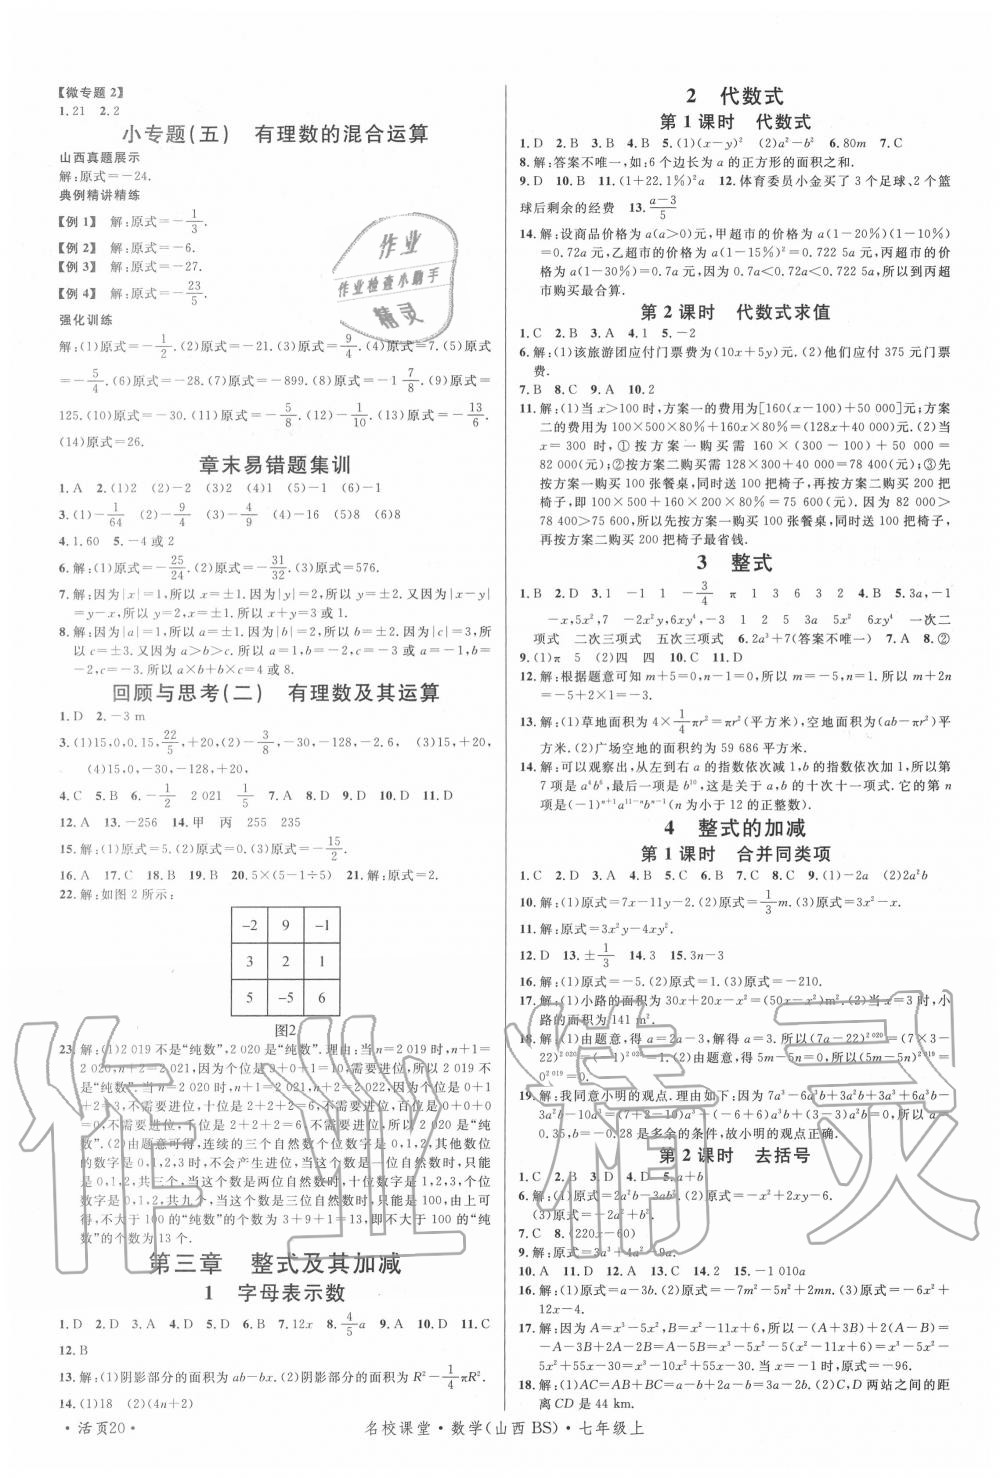 【微专题2】
1.21 2.2
小专题(五) 有理数的混合运算
山西真题展示
解:原式=-24.
典例精讲精练
【例1】 解:原式=-1/3.
【例2】 解:原式=-6.
【例3】 解:原式=-27.
【例4】 解:原式=-23/5.
强化训练
解:(1)原式=-1/2.(2)原式=-21.(3)原式=9/4.(4)原式=7.(5)原式
=-5/4.(6)原式=-28.(7)原式=-899.(8)原式=1 7/8.(9)原式=
125.(10)原式=-30.(11)原式=-5/8.(12)原式=-1/10.(13)原式=-13/6.
(14)原式=26.
章末易错题集训
1.A 2.(1)2 (2)-2 (3)2 (4)1 (5)-1 (6)1
3.(1)-1/64 (2)-9/4 (3)-4/9 (4)-16 (5)8 (6)8
4.1.60 5.-4或2
6.解:(1)原式=-25/24.(2)原式=-31/32.(3)原式=576.
7.解:因为|x|=1,所以x=±1.因为|y|=2,所以y=±2.又因为|x-y|
=y-x,所以y=2,x=±1.所以x+y=1或3.
8.解:因为|a|=1,所以a=±1.因为|b|=2,所以b=±2.因为|c|=3,所
以c=±3.又因为a>b>c.所以a=±1,b=-2,c=-3.
所以a×b+b×c=4或8.
回顾与思考(二) 有理数及其运算
1.D 2.-3 m
3.(1)15,0,0.15,22/5,+20,(2)-3/8,-30,-128,-2.6, (3)15,+20,
(4)15,0,-30,-128,+20,
4.C 5.B 6.-1/2 2 021 1/5 7.A 8.D 9.D 10.D 11.D
12.A 13.-256 14.甲 丙 255 235
15.解:(1)原式=5.(2)原式=0.(3)原式=0.(4)原式=-15/2.
16.A 17.C 18.B 19.B 20.5×(5-1÷5) 21.解:原式=2.
22.解:如图2所示:
-2 9 -1
3 2 1
5 -5 6
图2
23.解:(1)2 019不是“纯数”,2 020是“纯数”.理由:当n=2 019时,n+1=
2 020,n+2=2 021,因为个位是9+0+1=10,需要进位,所以2 019不是
“纯数”.当n=2 020时,n+1=2 021,n+2=2 022,因为个位是0+1
+2=3,不需要进位,十位是2+2+2=6,不需要进位,百位是0+0+0
=0,不需要进位,千位是2+2+2=6,不需要进位,所以2 020是“纯
数”.(2)由题意可得,连续的三个自然数个位数字是0,1,2,其他数位
的数字是0,1,2,3时,不会产生进位,当这个数是一位自然数时,只能
是0,1,2,共三个,当这个自然数是两位自然数时,十位数字是1,2,3,个位
数字是0,1,2,共九个,当这个数是三位自然数时,只能是100,由上可
得,不大于100的“纯数”的个数为3+9+1=13,即不大于100的“纯
数”的个数为13个.
第三章 整式及其加减
1 字母表示数
1.D 2.D 3.A 4.D 5.D 6.B 7.12x 8.4/5a 9.A 10.D 11.C
12.B
13.解:(1)阴影部分的面积为ab-bx.(2)阴影部分的面积为R²-1/4πR².
14.(1)18 (2)(4n+2)
2 代数式
第1课时 代数式
1.D 2.B 3.B 4.B 5.(1)(x-y)² (2)a²-b² 6.80m 7.C
8.解:答案不唯一,如:6个边长为a的正方形的面积之和.
9.D 10.B 11.(1+22.1%)²a 12.体育委员小金买了3个足球、2个篮
球后剩余的经费 13.a-3/5
14.解:设商品价格为a(a>0)元,甲超市的价格为a(1-20%)(1-10%)
=0.72a元,乙超市的价格为a(1-15%)²=0.722 5a元,丙超市的价格
为a(1-30%)=0.7a元,因为0.7a<0.72a<0.722 5a,所以到丙超
市购买最合算.
第2课时 代数式求值
1.C 2.B 3.A 4.1 5.-2
6.解:(1)该旅游团应付门票费为(10x+5y)元.(2)他们应付375元门票
费.
7.B 8.C 9.A 10.2
11.解:(1)当x>100时,方案一的费用为[160(x-100)+50 000]元;方案
二的费用为100×500×80%+160x×80%=(128x+40 000)元.(2)当
x=300时,①按方案一购买需160×(300-100)+50 000=
82 000(元);②按方案二购买需128×300+40 000=78 400(元);③先
按方案一购买100张餐桌,同时送100把椅子,再按方案二购买200把
椅子,需100×500+160×200×80%=75 600(元).因为82 000
>78 400>75 600,所以先按方案一购买100张餐桌,同时送100把椅子,
再按方案二购买200把椅子最省钱.
3 整式
1.B 2.D 3.1 -1 1 -3/4 π 1 3 6 3 2 4.B 5.3a,-1
-x,5x²,7 -2x²y,6xy⁴,-3 1 2 5 3a 5x² 6xy⁴ 一次二
项式 二次三项式 五次三项式 6.2a³+7(答案不唯一) 7.A 8.②
9.(1)π 5 (2)四 四 10.C 11.D
12.解:根据题意可知m+5=0,n-1=0,所以m=-5,n=1.所以m+2n
=-5+2×1=-3.
13.解:(1)草地面积为4×1/4πr²=πr²(平方米),空地面积为(ab-πr²)平
方米.(2)广场空地的面积约为59 686平方米.
14.解:可以观察出,从左到右a的指数依次减1,b的指数依次加1,所以第
7项是a⁴b⁶,最后一项是b¹⁰,这是关于a,b的十次十一项式.它的第n
项是(-1)ⁿ⁺¹a¹¹⁻ⁿbⁿ⁻¹(n为小于12的正整数).
4 整式的加减
第1课时 合并同类项
1.C 2.D 3.A 4.D 5.B 6.C 7.B 8.C 9.(1)-2a (2)2a²b
10.解:(1)原式=7x-11y-2.(2)原式=1/3m.(3)原式=3x²-x.
11.解:原式=3x²y-4xy².
12.D 13.±1/3 14.3 15.3n-3
16.解:(1)原式=-5.(2)原式=1.(3)原式=-210.
17.解:(1)小路的面积为30x+20x-x²=(50x-x²)m².(2)当x=3时,小
路的面积为141 m².
18.解:(1)由题意,得a=2a-3,解得a=3.所以(7a-22)²⁰²⁰=(7×3-
22)²⁰²⁰=(-1)²⁰²⁰=1.(2)由题意,得5m-5n=0,所以(5m-5n)²⁰¹⁹=
0²⁰¹⁹=0.
19.解:我同意小明的观点.理由如下:因为7a³-6a³b+3a³+6a³b-3
=(7+3-10)a³+(-6+6)a³b-3=-3,所以a=
0.35,b=-0.28是多余的条件,故小明的观点正确.
第2课时 去括号
1.C 2.B 3.D 4.D 5.a+b
6.解:(1)原式=2a²b-3ab².(2)原式=-x²+2x-6.
(3)原式=-2a²+b².
7.C 8.(220x-60)
9.解:原式=3a³+4a²-9a.
10.A 11.D 12.C 13.C 14.2 15.-1 010a
16.解:(1)原式=a-3b.(2)原式=-7m²-5n²+2mn.(3)原式=-6x²+
12x-4.
17.解:因为A=x³-5x²,B=x²-11x+6,所以-(A+3B)+2(A-B)
=-A-3B+2A-2B=A-5B=x³-5x²-5(x²-11x+6)=x³-5x²
-5x²+55x-30=x³-10x²+55x-30.当x=-1时,原式=-96.
18.解:(1)AC=AB+BC=2a+b+3a-b=5a.(2)C,D两站之间的距
离CD=a+2b.
·活页20· 名校课堂·数学(山西BS)·七年级上
作业
作业检查小助手
精灵
作业精灵